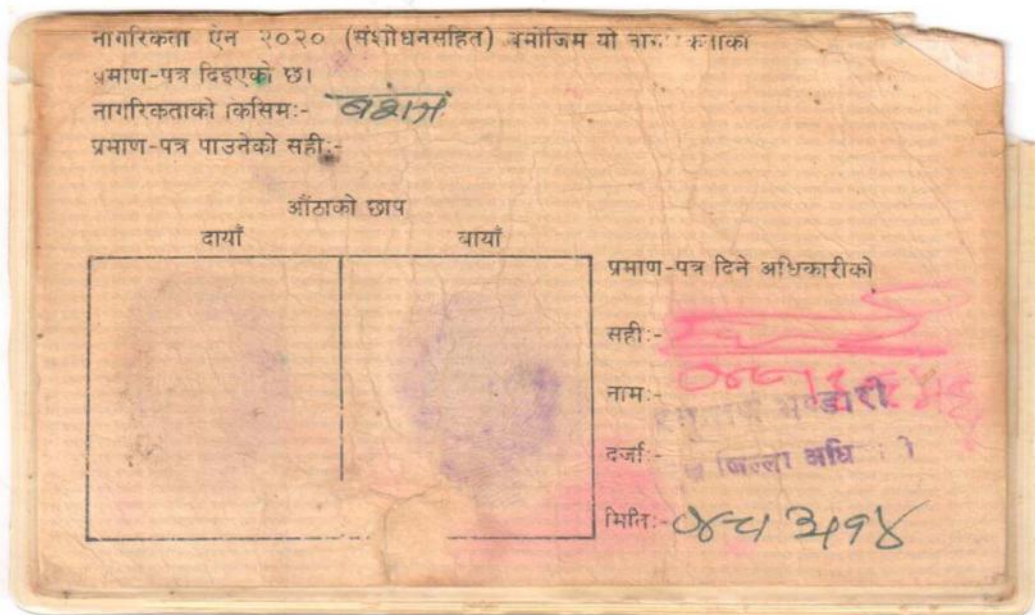 नागरिकता ऐन २०२० (संशोधनसहित) बमोजिम यो
प्रमाण-पत्र दिइएको छ।
नागरिकताको किसिमः- वंशज
प्रमाण-पत्र पाउनेको सहीः-
औंठाको छाप
दायाँ बायाँ
प्रमाण-पत्र दिने अधिकारीको
सहीः-
नामः- भण्डारी
दर्जाः- जिल्ला
मितिः-